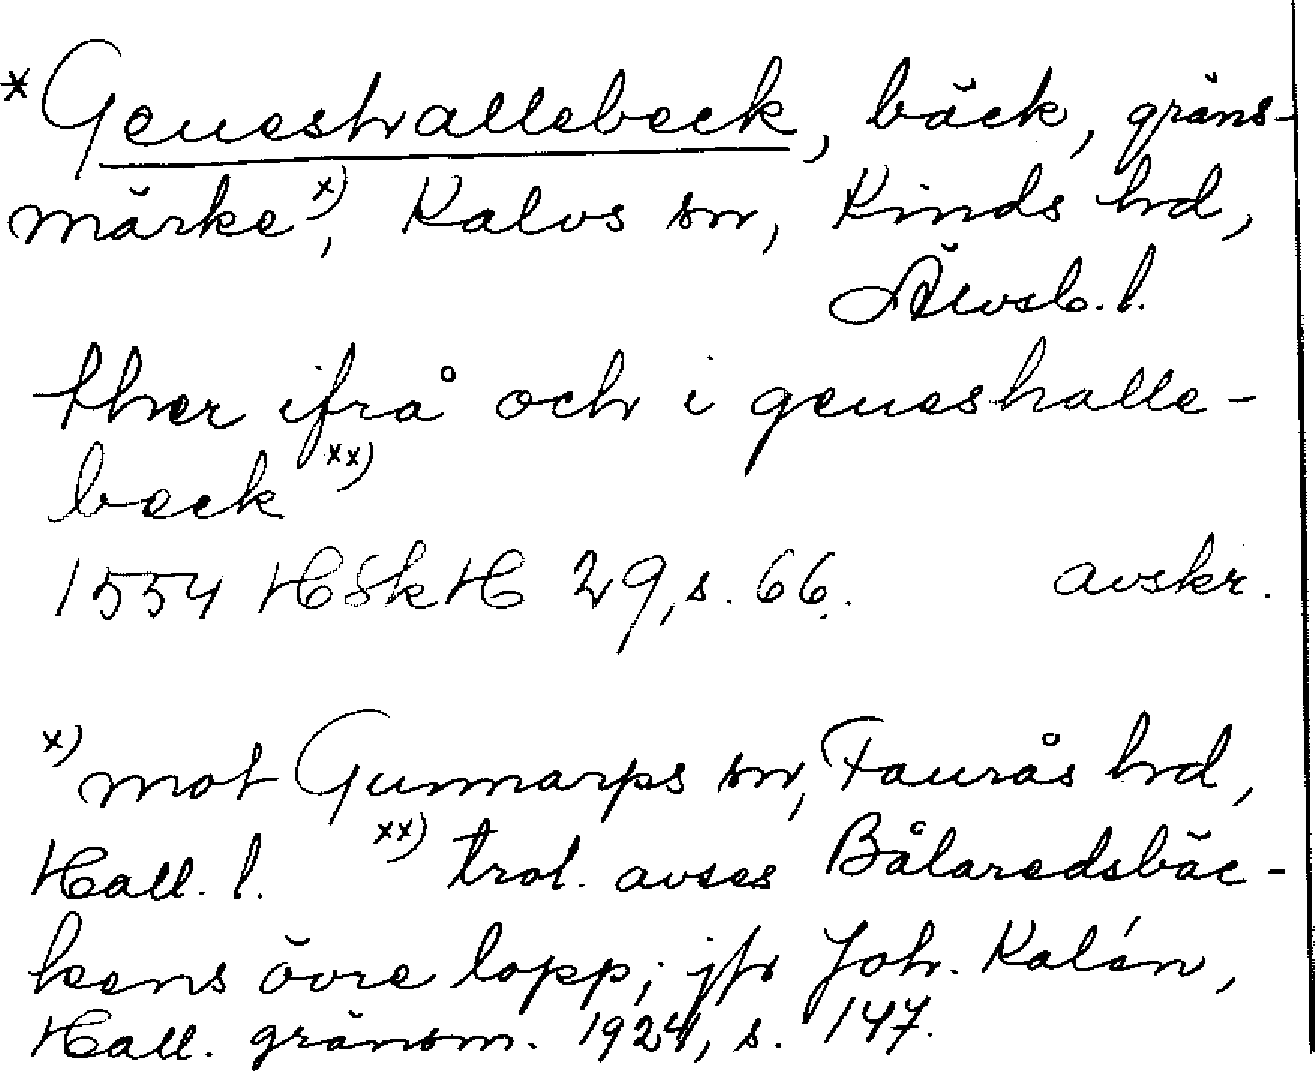 *Geneshallebeck, bäck, gräns-
märke x), Kalvs sn, Kinds hd,
Älvsb. l.
ther ifrå och i geneshalle-
beck xx)
1554 HSkH 29, s. 66. avskr.
x) mot Gunnarps sn, Faurås hd,
Hall. l. xx) trol. avses Bålaredsbäc-
kens övre lopp; jfr Joh. Kalén,
Hall. gränsm. 1924, s. 147.